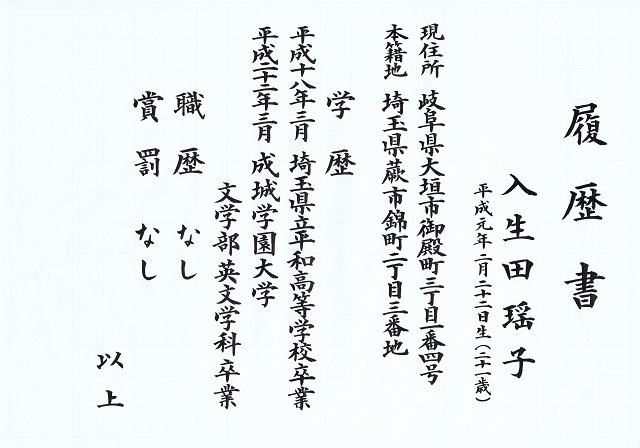 履歴書
入生田瑶子
平成元年二月二十二日生（二十一歳）
現住所 岐阜県大垣市御殿町三丁目一番四号
本籍地 埼玉県蕨市錦町二丁目三番地
学歴
平成十八年三月 埼玉県立平和高等学校卒業
平成二十二年三月 成城学園大学
文学部英文学科卒業
職歴 なし
賞罰 なし
以上